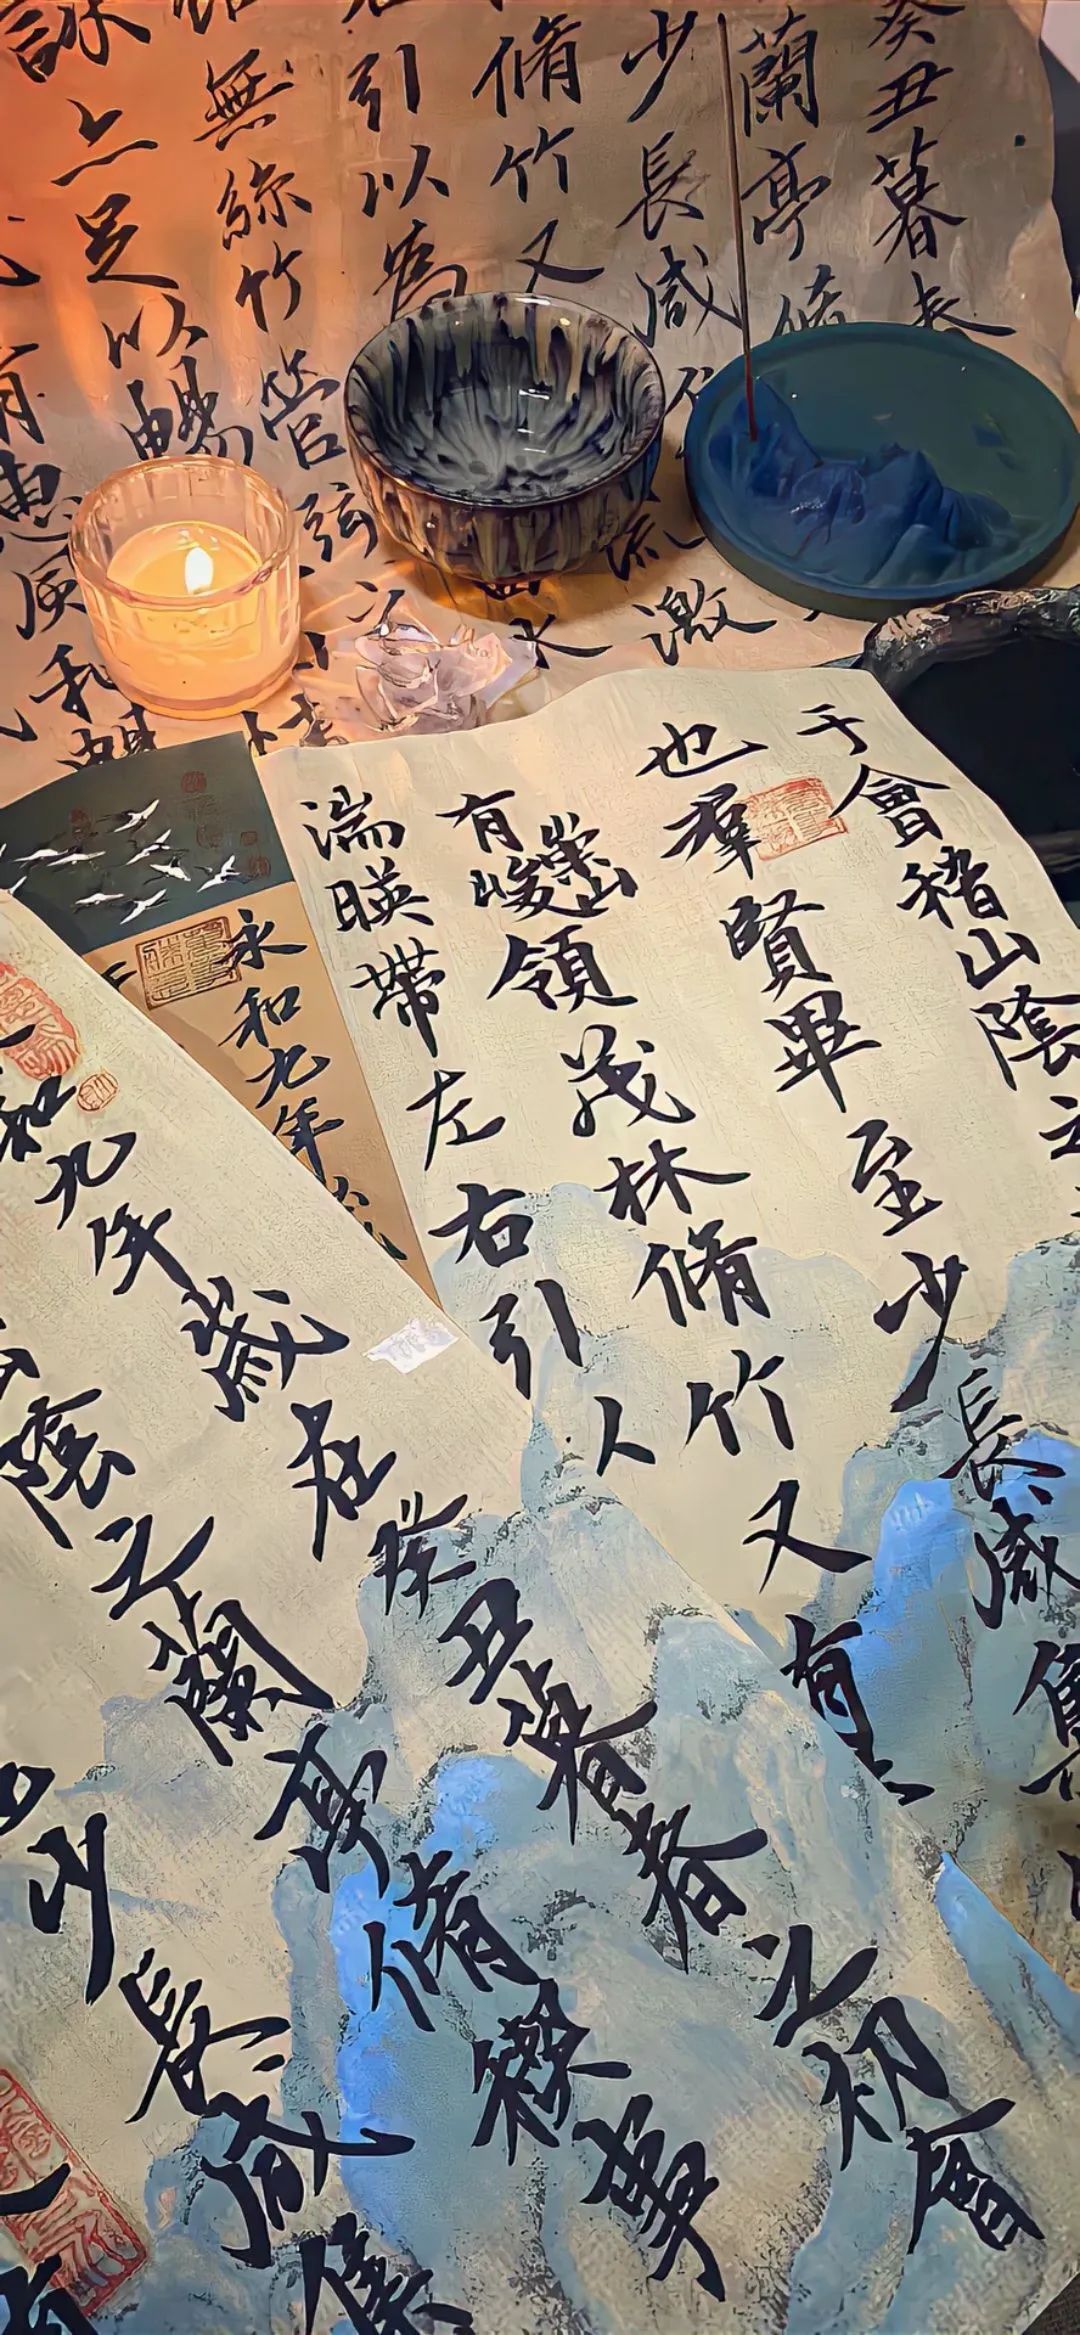 癸丑暮春
蘭亭脩
少長咸
脩竹又
引以為
激
水
無絲竹管弦之
詠
亦足以暢
有
惠風和暢
于會稽山陰之
也羣賢畢至少長咸集
有崇山
峻領茂林脩竹又有
湍暎帶左右引人
永和九年歲
和九年歲在癸丑暮春之初會
山陰之蘭亭脩禊事
少長咸集